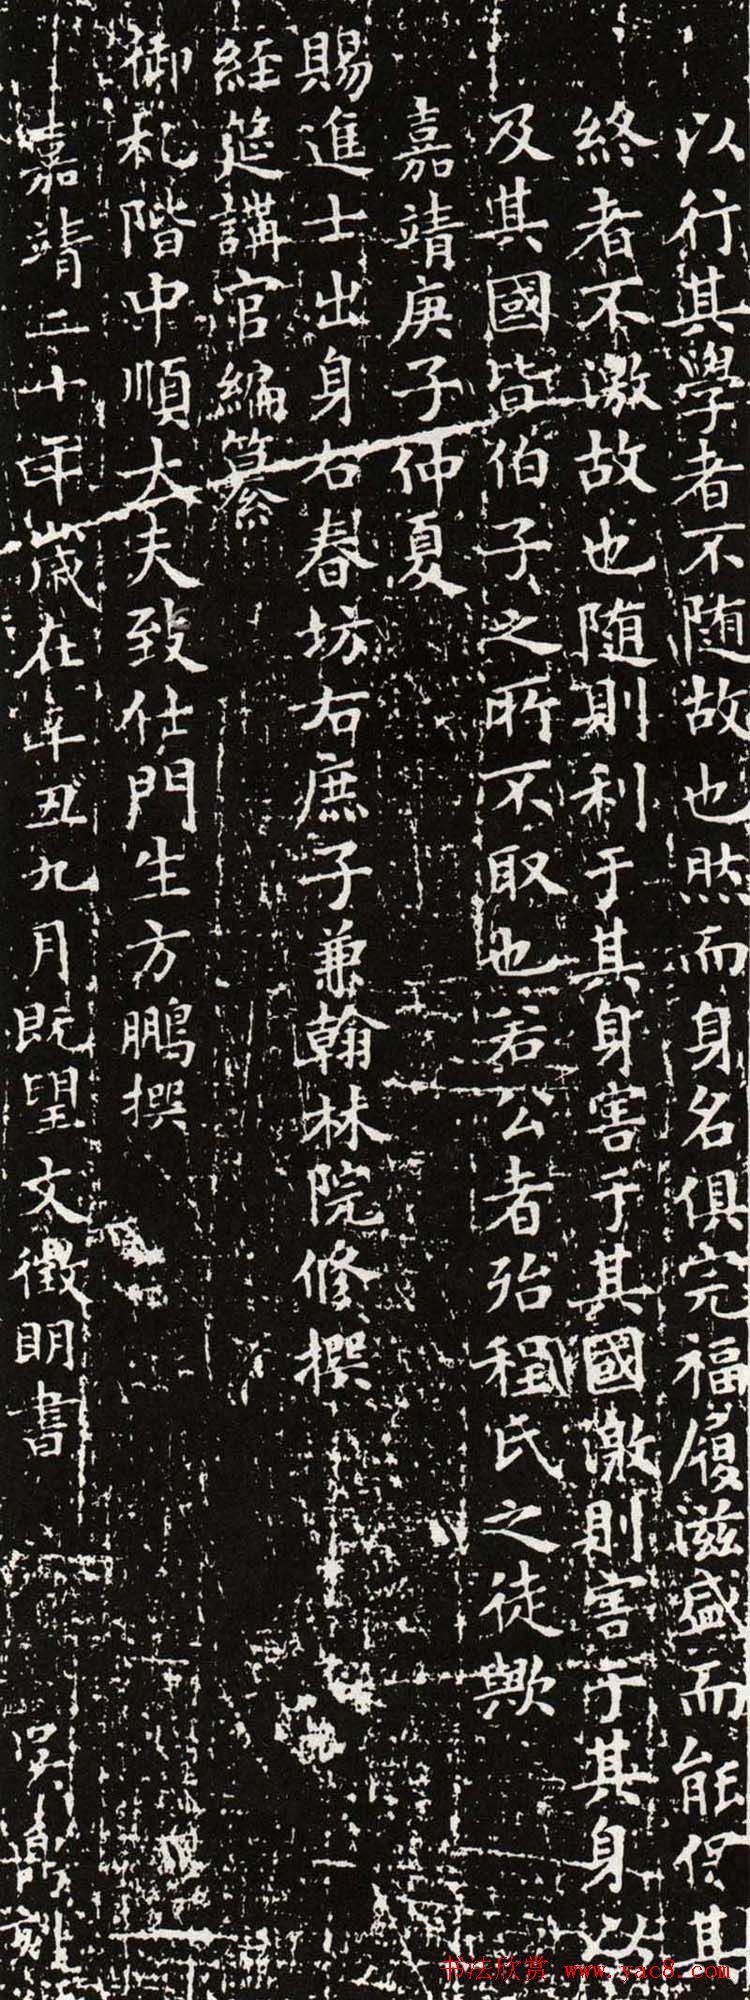 以行其學者不随故也然而身名俱完福履滋盛而能保其
終者不激故也随則利于其身害于其國激則害于其身以
及其國皆伯子之所不取也若公者殆程氏之徒歟
嘉靖庚子仲夏
賜進士出身右春坊右庶子兼翰林院修撰
經筵講官編纂
御札階中順大夫致仕門生方鵬撰
嘉靖二十年歲在辛丑九月既望文徵明書
吳鼒刻
书法欣赏 www.yac8.com